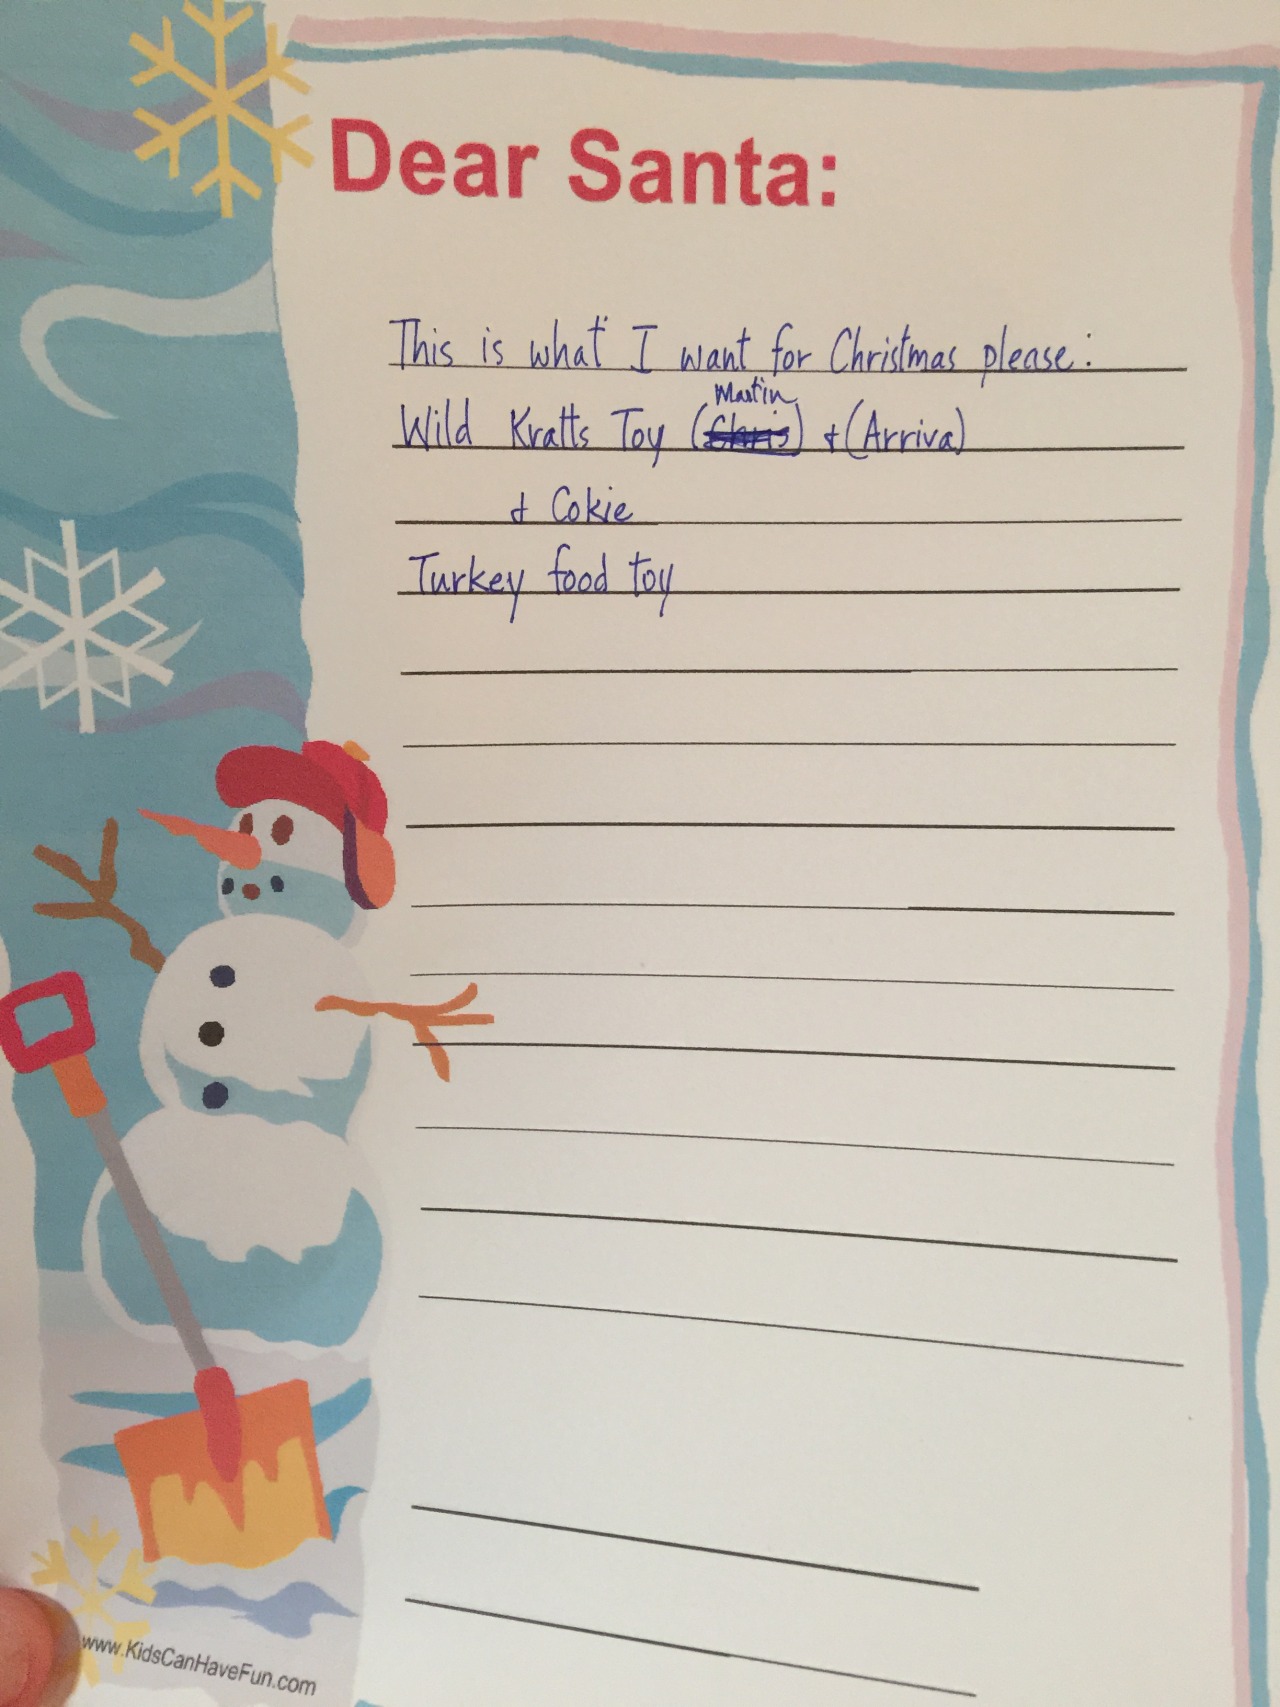 Dear Santa:
This is what I want for Christmas please:
Martin
Wild Kratts Toy (Chris) & (Arriva)
& Cokie
Turkey food toy
www.KidsCanHaveFun.com